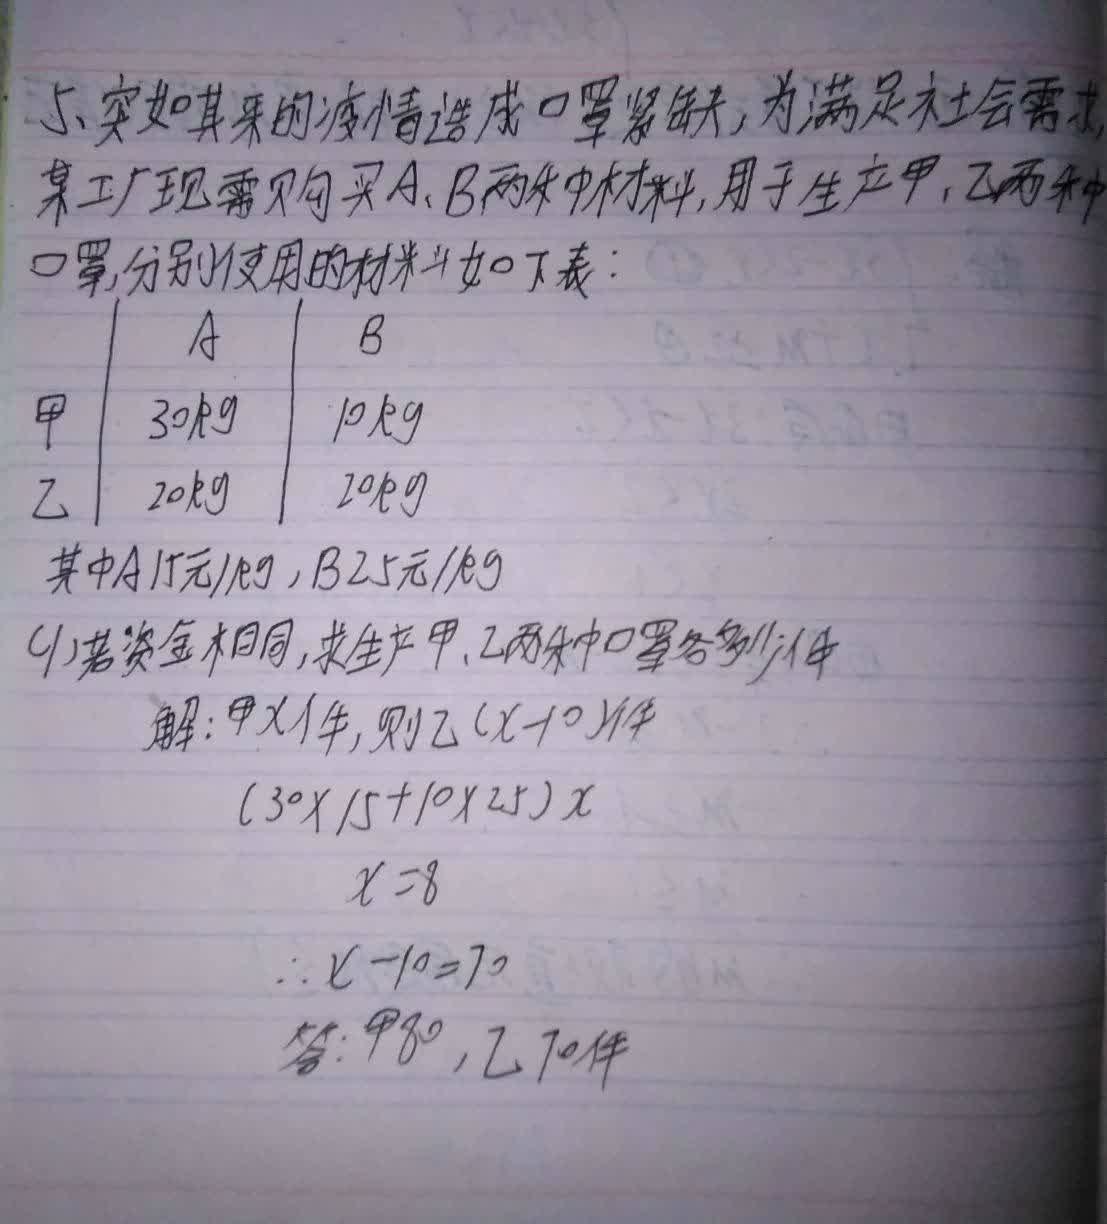 5、突如其来的疫情造成口罩紧缺,为满足社会需求,
某工厂现需购买A、B两种材料,用于生产甲、乙两种
口罩,分别使用的材料如下表:
A B
甲 30kg 10kg
乙 20kg 20kg
其中A15元/kg,B25元/kg
(1)若资金相同,求生产甲、乙两种口罩各多少件
解:甲x件,则乙(x-10)件
(30×15+10×25)x
x=8
∴x-10=70
答:甲80,乙70件